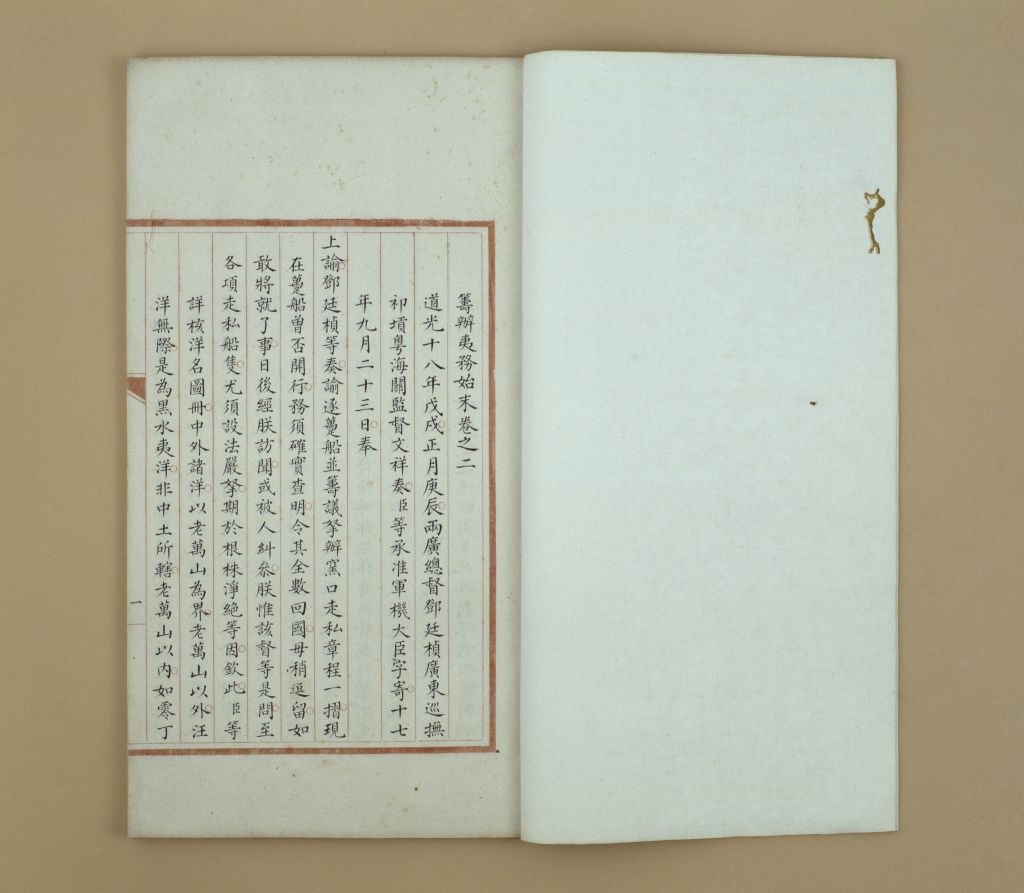 籌辦夷務始末卷之二
道光十八年戊戌正月庚辰兩廣總督鄧廷楨廣東巡撫
祁𡎴粵海關監督文祥奏臣等承准軍機大臣字寄十七
年九月二十三日奉
上諭鄧廷楨等奏諭逐躉船並籌議拏辦窯口走私章程一摺現
在躉船曾否開行務須確實查明令其全數回國毋稍逗留如
敢將就了事日後經朕訪聞或被人糾叅朕惟該督等是問至
各項走私船隻尤須設法嚴拏期於根株淨絕等因欽此臣等
詳核洋名圖冊中外諸洋以老萬山為界老萬山以外汪
洋無際是為黑水夷洋非中土所轄老萬山以內如零丁
一